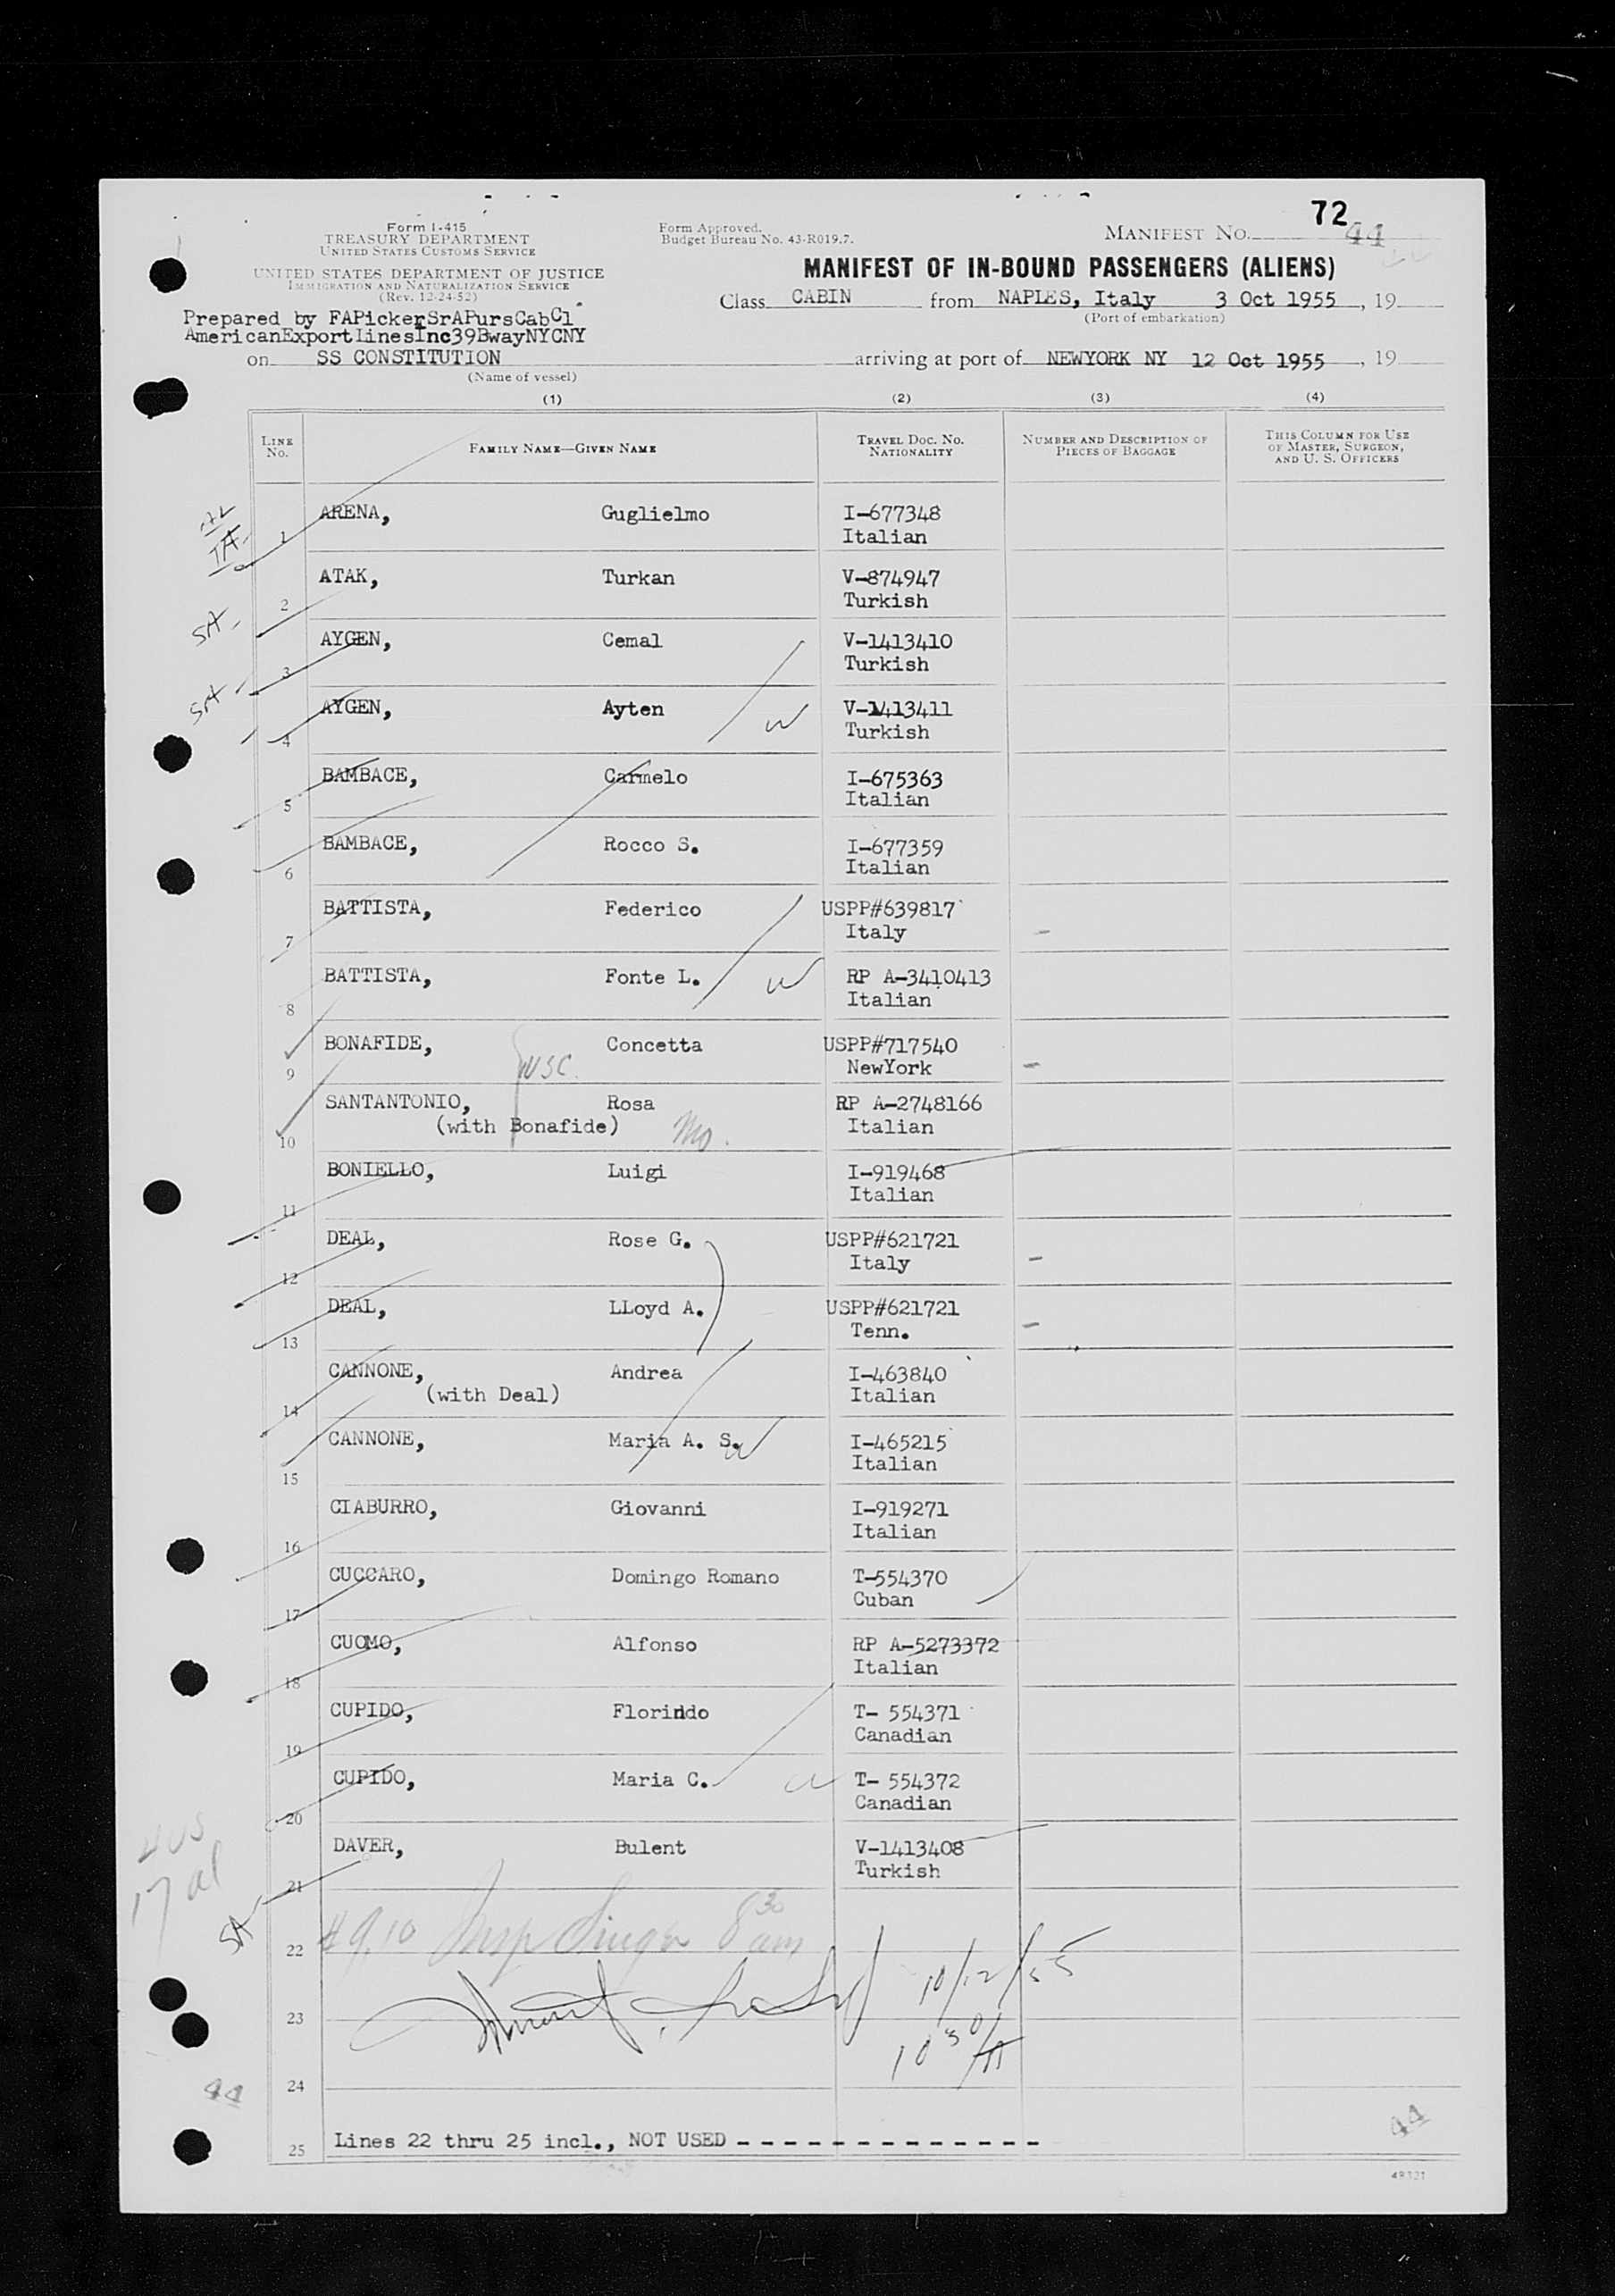 72
Form I-415
TREASURY DEPARTMENT
UNITED STATES CUSTOMS SERVICE
Form Approved.
Budget Bureau No. 43-R019.7.
MANIFEST NO. 44
UNITED STATES DEPARTMENT OF JUSTICE
IMMIGRATION AND NATURALIZATION SERVICE
(Rev. 12-24-52)
MANIFEST OF IN-BOUND PASSENGERS (ALIENS)
Class CABIN from NAPLES, Italy 3 Oct 1955, 19
(Port of embarkation)
Prepared by FAPickerSrAPursCabCl
AmericanExportLinesInc39BwayNYCNY
on SS CONSTITUTION arriving at port of NEWYORK NY 12 Oct 1955, 19
(Name of vessel)
(1) (2) (3) (4)
LINE NO. FAMILY NAME—GIVEN NAME TRAVEL DOC. NO. NATIONALITY NUMBER AND DESCRIPTION OF PIECES OF BAGGAGE THIS COLUMN FOR USE OF MASTER, SURGEON, AND U. S. OFFICERS
ARENA, Guglielmo I-677348
1 Italian
ATAK, Turkan V-874947
SA- 2 Turkish
AYGEN, Cemal V-1413410
SA- 3 Turkish
AYGEN, Ayten V-1413411
4 W Turkish
BAMBACE, Carmelo I-675363
5 Italian
BAMBACE, Rocco S. I-677359
6 Italian
BATTISTA, Federico USPP#639817
7 Italy -
BATTISTA, Fonte L. W RP A-3410413
8 Italian
BONAFIDE, Concetta USPP#717540
9 USC. NewYork -
SANTANTONIO, Rosa RP A-2748166
10 (with Bonafide) Mo. Italian
BONIELLO, Luigi I-919468
11 Italian
DEAL, Rose G. USPP#621721
12 Italy -
DEAL, LLoyd A. USPP#621721
13 Tenn. -
CANNONE, Andrea I-463840
14 (with Deal) Italian
CANNONE, Maria A. S. W I-465215
15 Italian
CIABURRO, Giovanni I-919271
16 Italian
CUCCARO, Domingo Romano T-554370
17 Cuban
CUOMO, Alfonso RP A-5273372
18 Italian
CUPIDO, Florindo T- 554371
19 Canadian
CUPIDO, Maria C. W T- 554372
20 Canadian
DAVER, Bulent V-1413408
21 Turkish
4 US
17 al
SA
22 #9,10 Insp Singer 8 30 am
10/12/55
23
10 30/A
24
44
25 Lines 22 thru 25 incl., NOT USED - - - - - - - - - - - - - -
44
49321